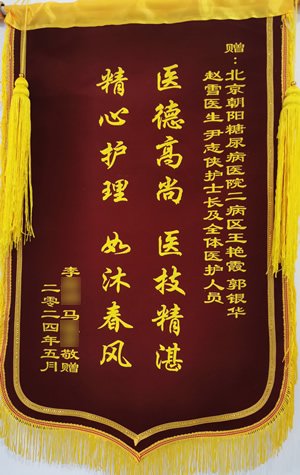 赠：北京朝阳糖尿病医院二病区王艳霞 郭银华
赵雪医生 尹志侠护士长及全体医护人员
医德高尚 医技精湛
精心护理 如沐春风
李 马 敬赠
二零二四年五月